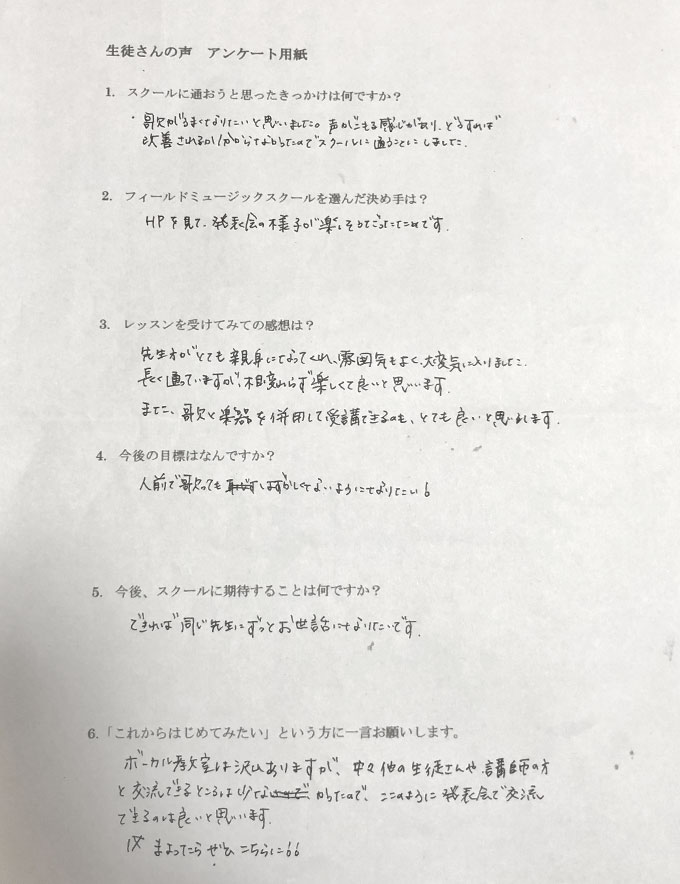 生徒さんの声　アンケート用紙
1. スクールに通おうと思ったきっかけは何ですか？
・歌がうまくなりたいと思いました。声がこもる感じがあり、どうすれば
改善されるか分からなかったのでスクールに通うことにしました。
2. フィールドミュージックスクールを選んだ決め手は？
HPを見て、発表会の様子が楽しそうだったためです。
3. レッスンを受けてみての感想は？
先生方がとても親身になってくれ、雰囲気もよく、大変気に入りました。
長く通っていますが、相変わらず楽しくて良いと思います。
また、歌と楽器を併用して受講できるのも、とても良いと思います。
4. 今後の目標はなんですか？
人前で歌ってもはずかしくないようになりたい
5. 今後、スクールに期待することは何ですか？
できれば同じ先生にずっとお世話になりたいです。
6.「これからはじめてみたい」という方に一言お願いします。
ボーカル教室は沢山ありますが、中々他の生徒さんや講師の方
と交流できるところは少なかったので、ここのように発表会で交流
できるのは良いと思います。
まよったらぜひこちらに